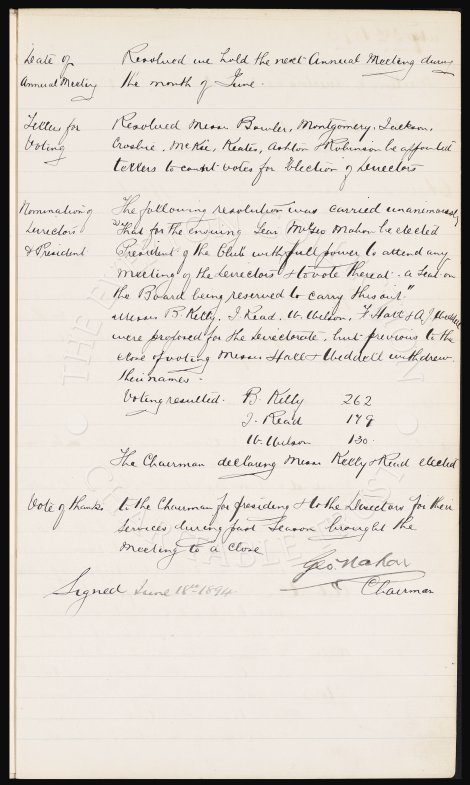 Date of Resolved we hold the next Annual Meeting during
Annual Meeting the month of June.
Tellers for Resolved Messrs Bowler, Montgomery, Jackson,
Voting Crosbie, McKie, Keates, Ashton & Robinson be appointed
tellers to count votes for Election of Directors
Nomination of The following resolution was carried unanimously
Directors "That for the ensuing Year Mr Geo Mahon be elected
& President President of the Club with full power to attend any
Meeting of the Directors & to vote thereat - a Seat on
the Board being reserved to carry this out"
Messrs B Kelly, J. Read, W. Wilson, F Hall & A.J. Weddell
were proposed for the Directorate, but previous to the
close of voting Messrs Hall & Weddell withdrew
their names.
Voting resulted. B. Kelly 262
J. Read 179
W. Wilson 130.
The Chairman declaring Messrs Kelly & Read elected
Vote of thanks to the Chairman for presiding & to the Directors for their
services during past Season brought the
Meeting to a close
Geo Mahon
Signed June 18th 1894. Chairman